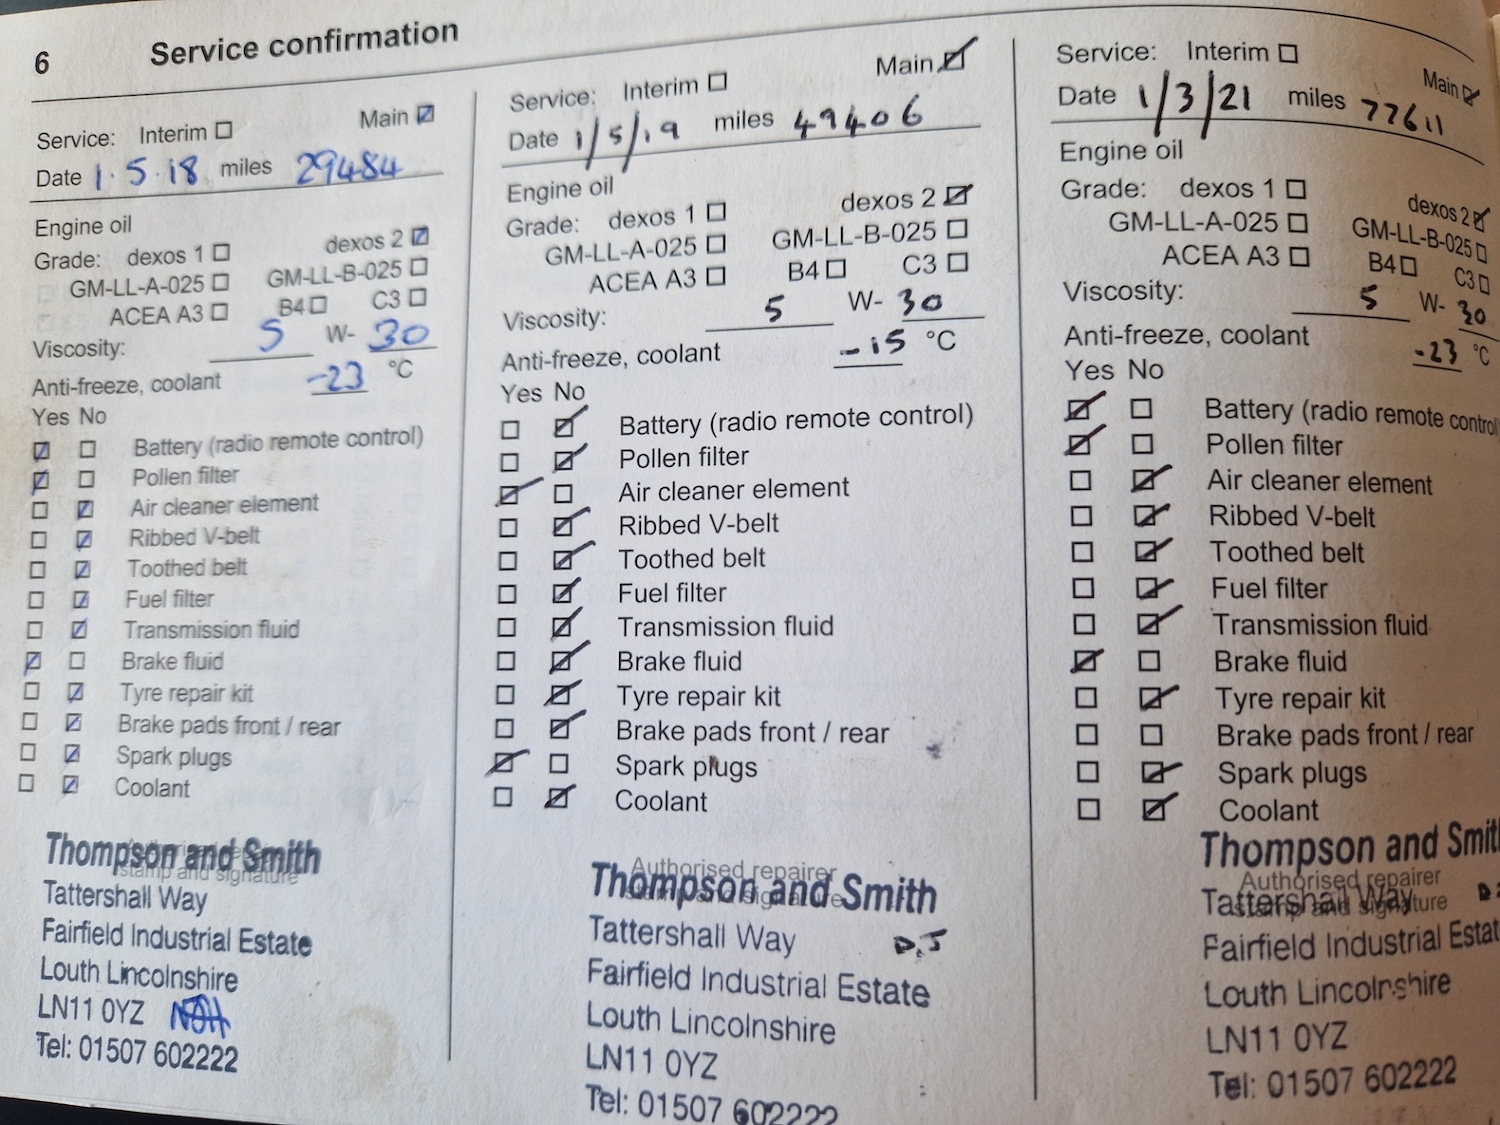 6 Service confirmation
Service: Interim ☐ Main ☑
Date 1.5.18 miles 29484
Engine oil
Grade: dexos 1 ☐ dexos 2 ☑
GM-LL-A-025 ☐ GM-LL-B-025 ☐
ACEA A3 ☐ B4 ☐ C3 ☐
Viscosity: 5 W- 30
Anti-freeze, coolant -23 °C
Yes No
☑ ☐ Battery (radio remote control)
☑ ☐ Pollen filter
☐ ☑ Air cleaner element
☐ ☑ Ribbed V-belt
☐ ☑ Toothed belt
☐ ☑ Fuel filter
☐ ☑ Transmission fluid
☑ ☐ Brake fluid
☐ ☑ Tyre repair kit
☐ ☑ Brake pads front / rear
☐ ☑ Spark plugs
☐ ☑ Coolant
Authorised repairer
stamp and signature
Thompson and Smith
Tattershall Way
Fairfield Industrial Estate
Louth Lincolnshire
LN11 0YZ
Tel: 01507 602222
Service: Interim ☐ Main ☑
Date 1/5/19 miles 49406
Engine oil
Grade: dexos 1 ☐ dexos 2 ☑
GM-LL-A-025 ☐ GM-LL-B-025 ☐
ACEA A3 ☐ B4 ☐ C3 ☐
Viscosity: 5 W- 30
Anti-freeze, coolant -15 °C
Yes No
☐ ☑ Battery (radio remote control)
☐ ☑ Pollen filter
☑ ☐ Air cleaner element
☐ ☑ Ribbed V-belt
☐ ☑ Toothed belt
☐ ☑ Fuel filter
☐ ☑ Transmission fluid
☐ ☑ Brake fluid
☐ ☑ Tyre repair kit
☐ ☑ Brake pads front / rear
☑ ☐ Spark plugs
☐ ☑ Coolant
Authorised repairer
stamp and signature
Thompson and Smith
Tattershall Way D.J
Fairfield Industrial Estate
Louth Lincolnshire
LN11 0YZ
Tel: 01507 602222
Service: Interim ☐ Main ☑
Date 1/3/21 miles 77611
Engine oil
Grade: dexos 1 ☐ dexos 2 ☑
GM-LL-A-025 ☐ GM-LL-B-025 ☐
ACEA A3 ☐ B4 ☐ C3 ☐
Viscosity: 5 W- 30
Anti-freeze, coolant -23 °C
Yes No
☑ ☐ Battery (radio remote control
☑ ☐ Pollen filter
☐ ☑ Air cleaner element
☐ ☑ Ribbed V-belt
☐ ☑ Toothed belt
☐ ☑ Fuel filter
☐ ☑ Transmission fluid
☑ ☐ Brake fluid
☐ ☑ Tyre repair kit
☐ ☐ Brake pads front / rear
☐ ☑ Spark plugs
☐ ☑ Coolant
Authorised repairer
stamp and signature
Thompson and Smit
Tattershall Way
Fairfield Industrial Estat
Louth Lincolnshire
LN11 0YZ
Tel: 01507 602222